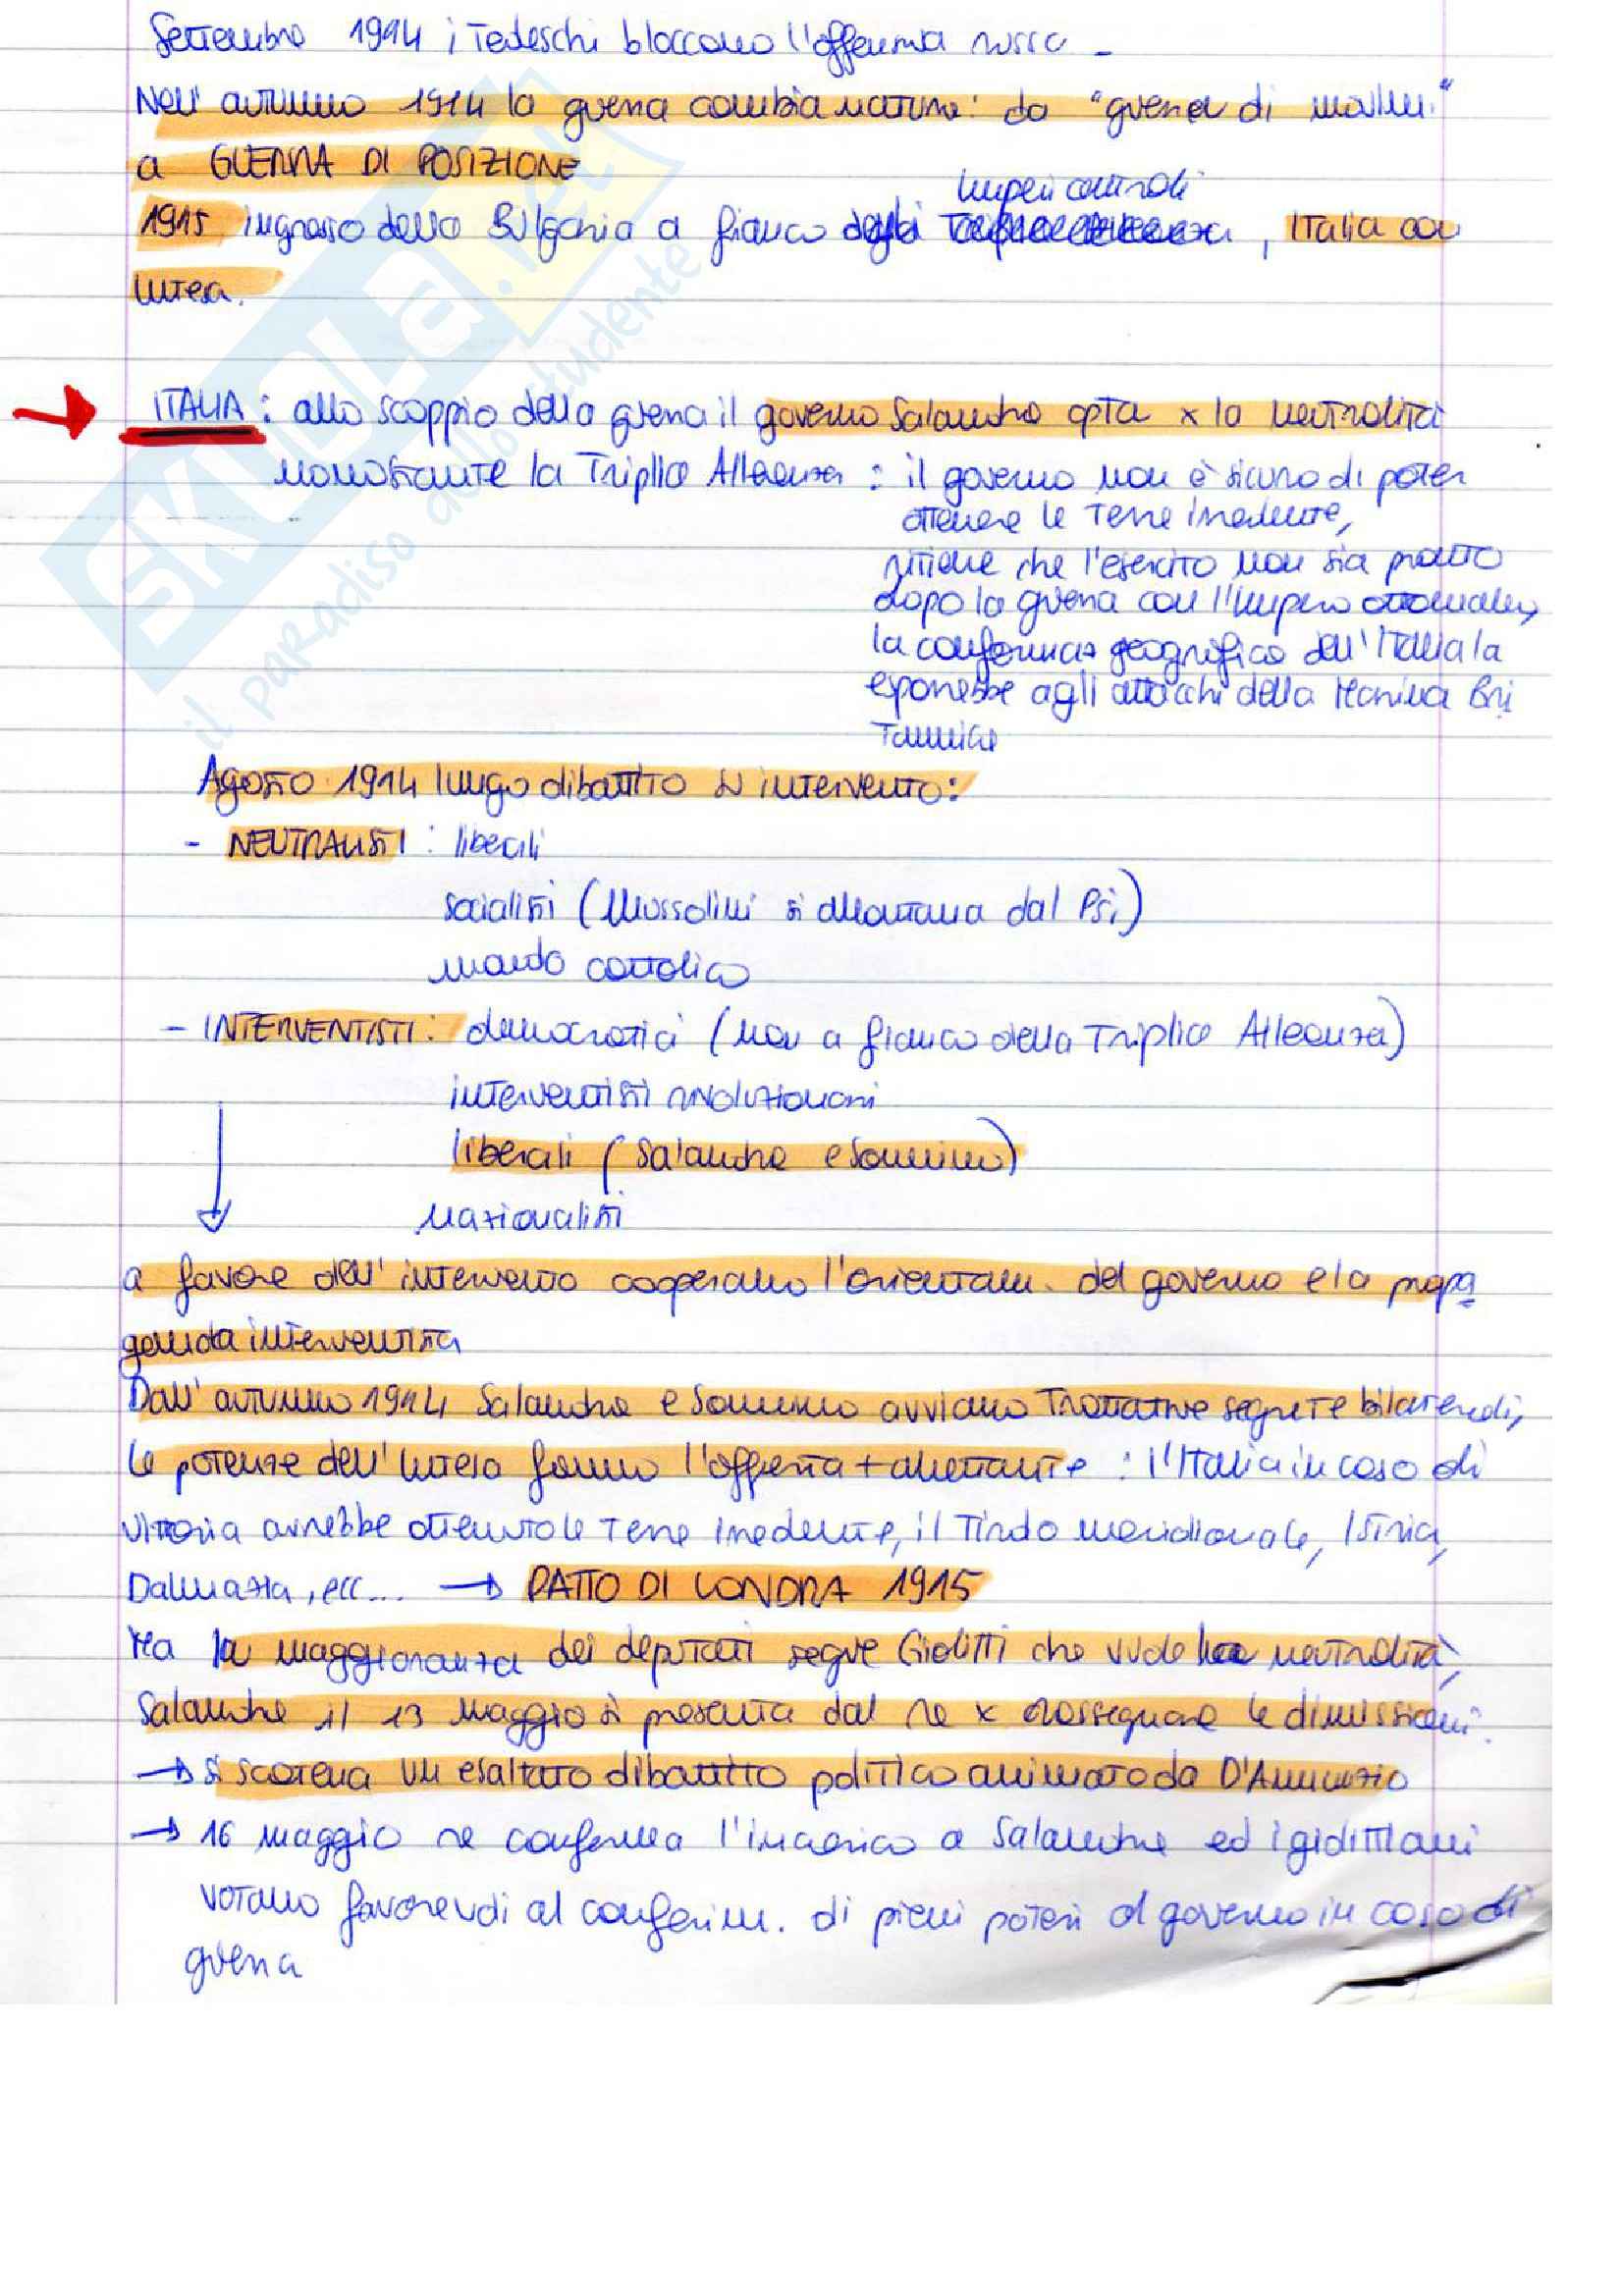 Settembre 1914 i Tedeschi bloccano l'offensiva russa -
Nell' autunno 1914 la guerra cambia natura: da "guerra di movim."
a GUERRA DI POSIZIONE
Imperi centrali
1915 ingresso della Bulgaria a fianco degli , Italia con
Intesa.
→ ITALIA : allo scoppio della guerra il governo Salandra opta x la neutralità
nonostante la Triplice Alleanza : il governo non è sicuro di poter
ottenere le terre irredente,
ritiene che l'esercito non sia pronto
dopo la guerra con l'Impero ottomano,
la conformaz geografica dell'Italia la
esporrebbe agli attacchi della Marina Bri
tannica
Agosto 1914 lungo dibattito su intervento:
- NEUTRALISTI : liberali
socialisti (Mussolini si allontana dal Psi)
mondo cattolico
- INTERVENTISTI: democratici (non a fianco della Triplice Alleanza)
interventisti rivoluzionari
liberali (Salandra e Sonnino)
nazionalisti
a favore dell'intervento cooperano l'orientam. del governo e la propa
ganda interventista
Dall'autunno 1914 Salandra e Sonnino avviano trattative segrete bilaterali,
le potenze dell'Intesa fanno l'offerta + allettante : l'Italia in caso di
vittoria avrebbe ottenuto le terre irredente, il Tirolo meridionale, Istria,
Dalmazia, ecc... → PATTO DI LONDRA 1915
Ma la maggioranza dei deputati segue Giolitti che vuole la neutralità,
Salandra il 13 maggio si presenta dal re x rassegnare le dimissioni.
→ si scatena un esaltato dibattito politico animato da D'Annunzio
→ 16 maggio re conferma l'incarico a Salandra ed i giolittiani
votano favorevoli al conferim. di pieni poteri al governo in caso di
guerra
SKUOLA.net
il paradiso dello studente